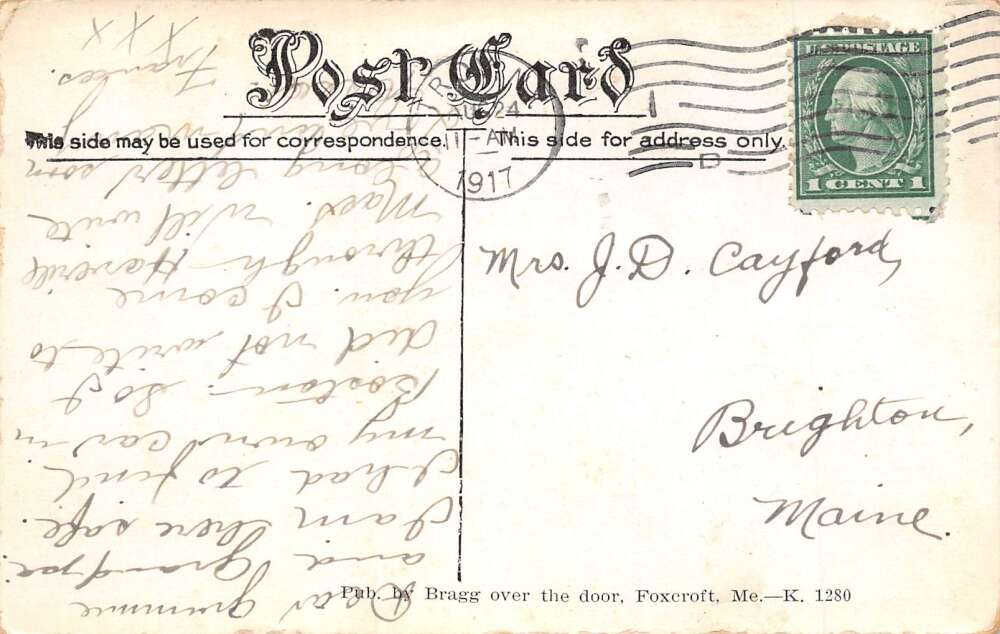 Post Card
This side may be used for correspondence.
This side for address only.
AUG 24
11-AM
1917
D
U.S. POSTAGE
1 CENT 1
Mrs. J. D. Cayford,
Brighton,
Maine.
Dear Grammie
and Grandpa
I am here safe
I had to find
my own car in
Boston. So I
did not write to
you. I come
through Haverill
Mass. Will write
a long letter soon
Frances.
X X X
Pub. by Bragg over the door, Foxcroft, Me.—K. 1280